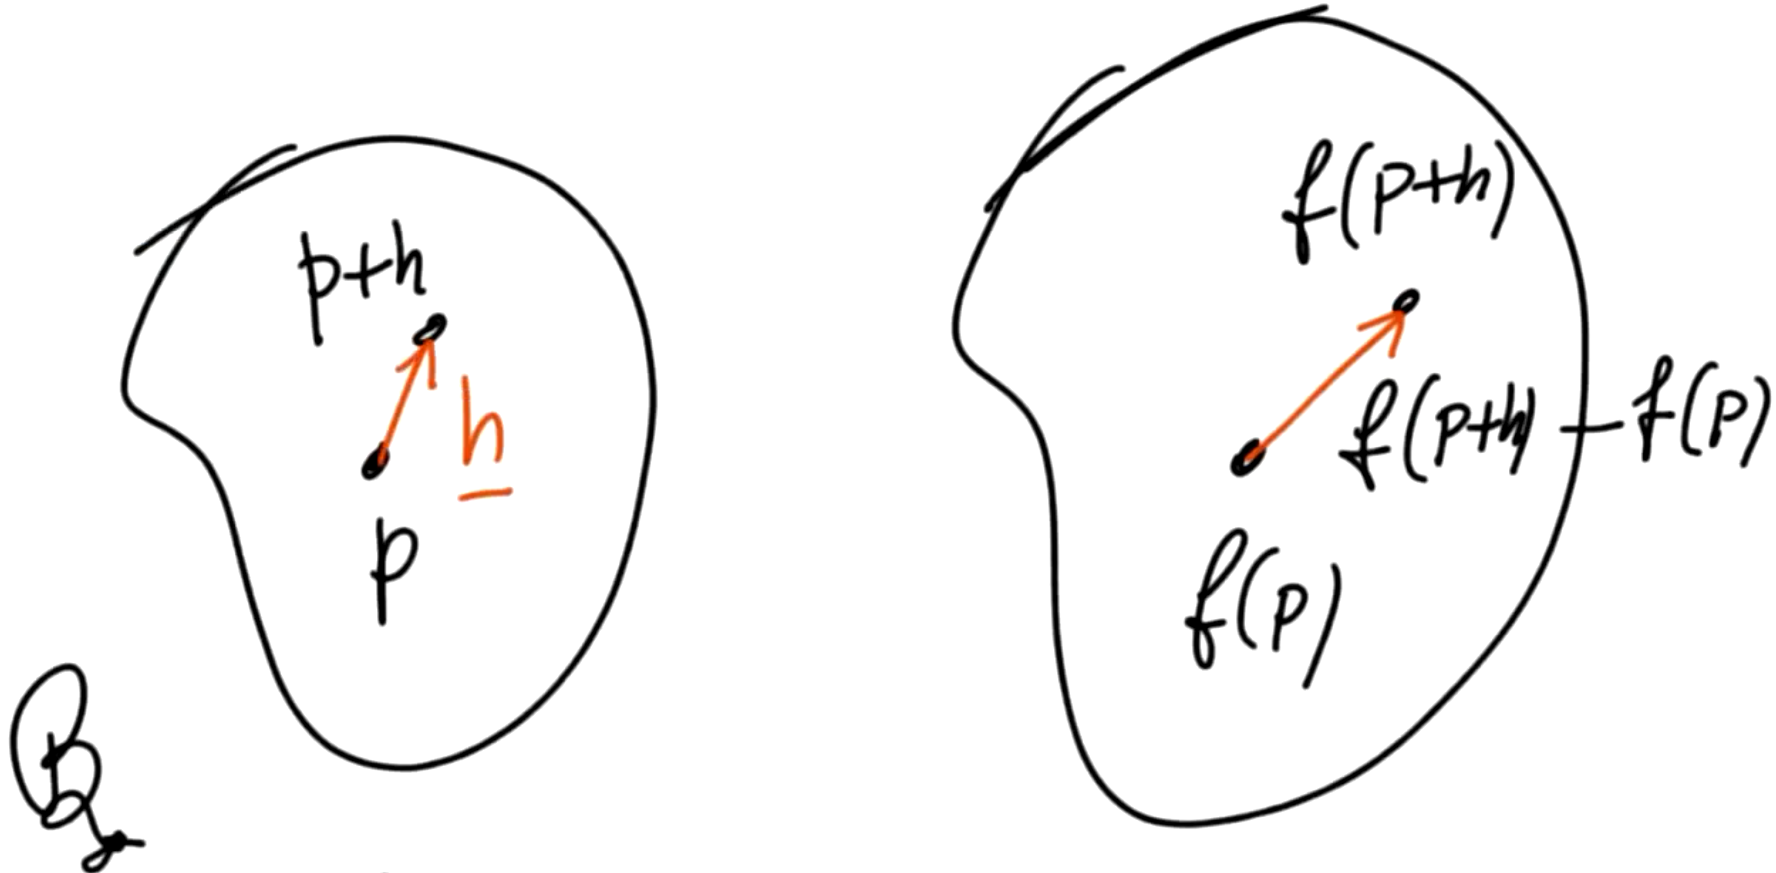 p+h
h
p
f(p+h)
f(p+h) - f(p)
f(p)